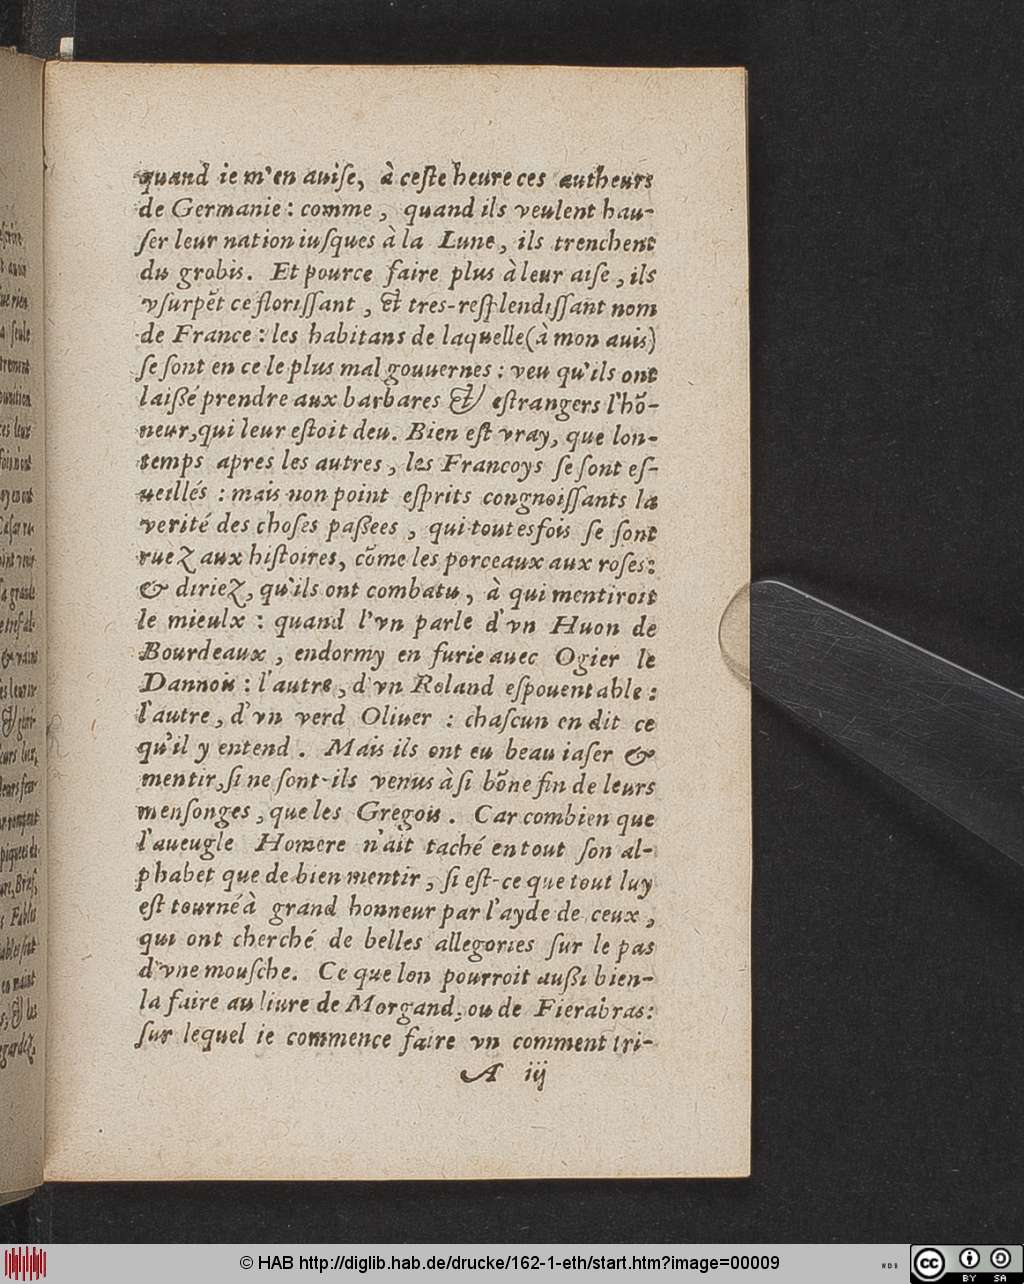 quand ie m'en auise, à ceste heure ces autheurs
de Germanie : comme, quand ils veulent hau-
ser leur nation iusques à la Lune, ils trenchent
du grobis. Et pource faire plus à leur aise, ils
vsurpẽt ce florissant, & tres-resplendissant nom
de France : les habitans de laquelle (à mon auis)
se sont en ce le plus mal gouuernes : veu qu'ils ont
laißé prendre aux barbares & estrangers l'hõ-
neur, qui leur estoit deu. Bien est vray, que lon-
temps apres les autres, les Francoys se sont es-
ueillés : mais non point esprits congnoissants la
verité des choses paßees, qui toutesfois se sont
ruez aux histoires, cõme les porceaux aux roses:
& diriez, qu'ils ont combatu, à qui mentiroit
le mieulx : quand l'vn parle d'vn Huon de
Bourdeaux, endormy en furie auec Ogier le
Dannois : l'autre, d'vn Roland espouentable :
l'autre, d'vn verd Oliuer : chascun en dit ce
qu'il y entend. Mais ils ont eu beau iaser &
mentir, si ne sont-ils venus à si bõne fin de leurs
mensonges, que les Gregois. Car combien que
l'aueugle Homere n'ait taché en tout son al-
phabet que de bien mentir, si est-ce que tout luy
est tourné à grand honneur par l'ayde de ceux,
qui ont cherché de belles allegories sur le pas
d'vne mousche. Ce que lon pourroit außi bien-
la faire au liure de Morgand, ou de Fierabras:
sur lequel ie commence faire vn comment tri-
A iij
© HAB http://diglib.hab.de/drucke/162-1-eth/start.htm?image=00009
cc BY SA